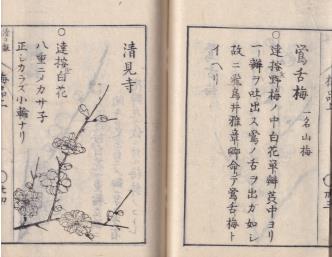 鶯舌梅 一名山梅
○達按野梅ノ中白花単瓣蕊中ヨリ
一瓣ヲ吐出ス鶯ノ舌ヲ出カ如シ
故ニ飛鳥井雅章卿命テ鶯舌梅ト
イヘリ
清見寺
○達按白花
八重ニノカサ子
正シカラズ小輪ナリ